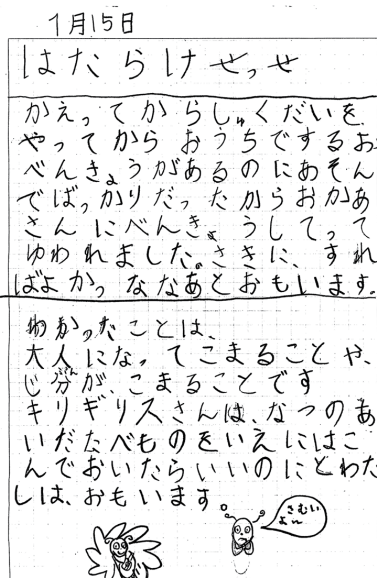 1月15日
はたらけせっせ
かえってからしゅくだいを
やってから おうちでするお
べんきょうがあるのにあそん
でばっかりだったからおかあ
さんにべんきょうしてって
ゆわれました。さきに、すれ
ばよかっななあとおもいます。
わかったことは、
大人になってこまることや、
じ分が、こまることです
キリギリスさんは、なつのあ
いだたべものをいえにはこ
んでおいたらいいのにとわた
しは、おもいます
さむい
よ〜